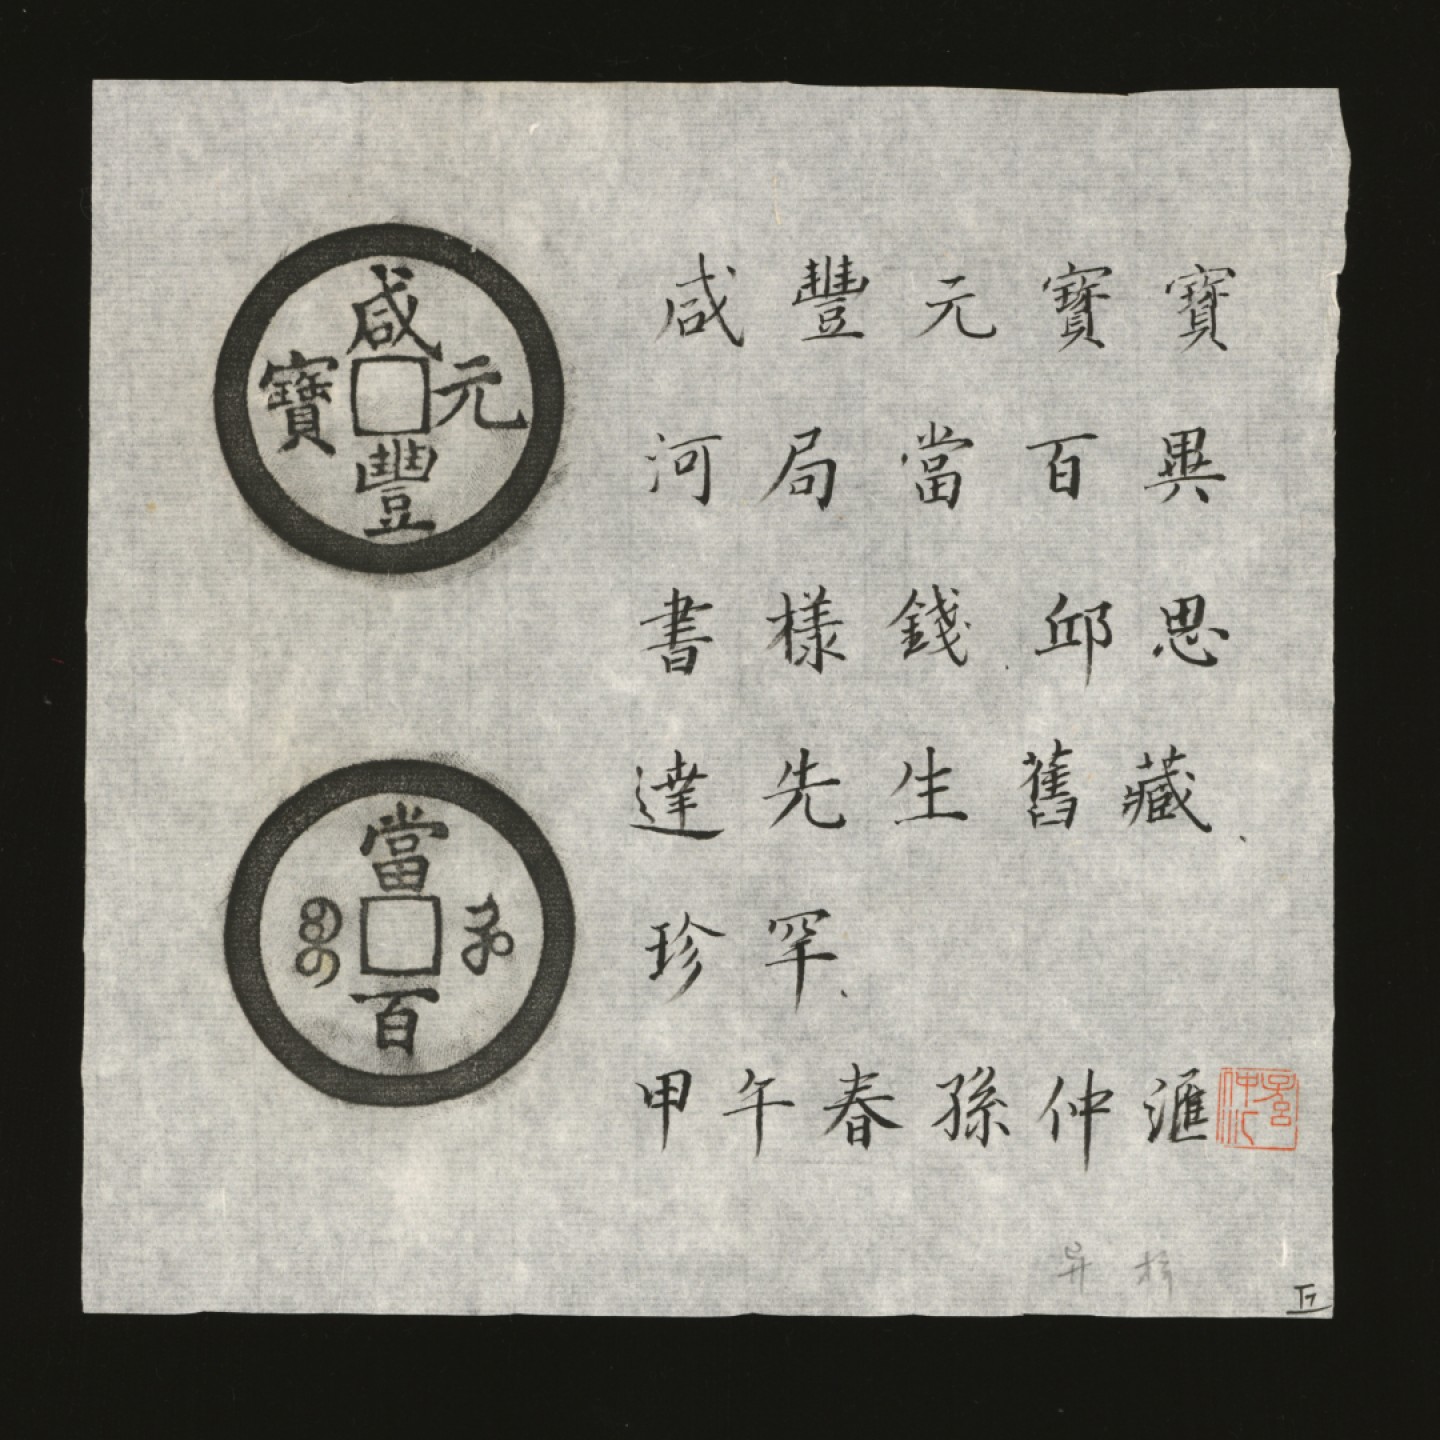 咸豐元寶
當百
咸豐元寶寶
河局當百異
書樣錢邱思
達先生舊藏、
珍罕、
甲午春孫仲滙
异 样